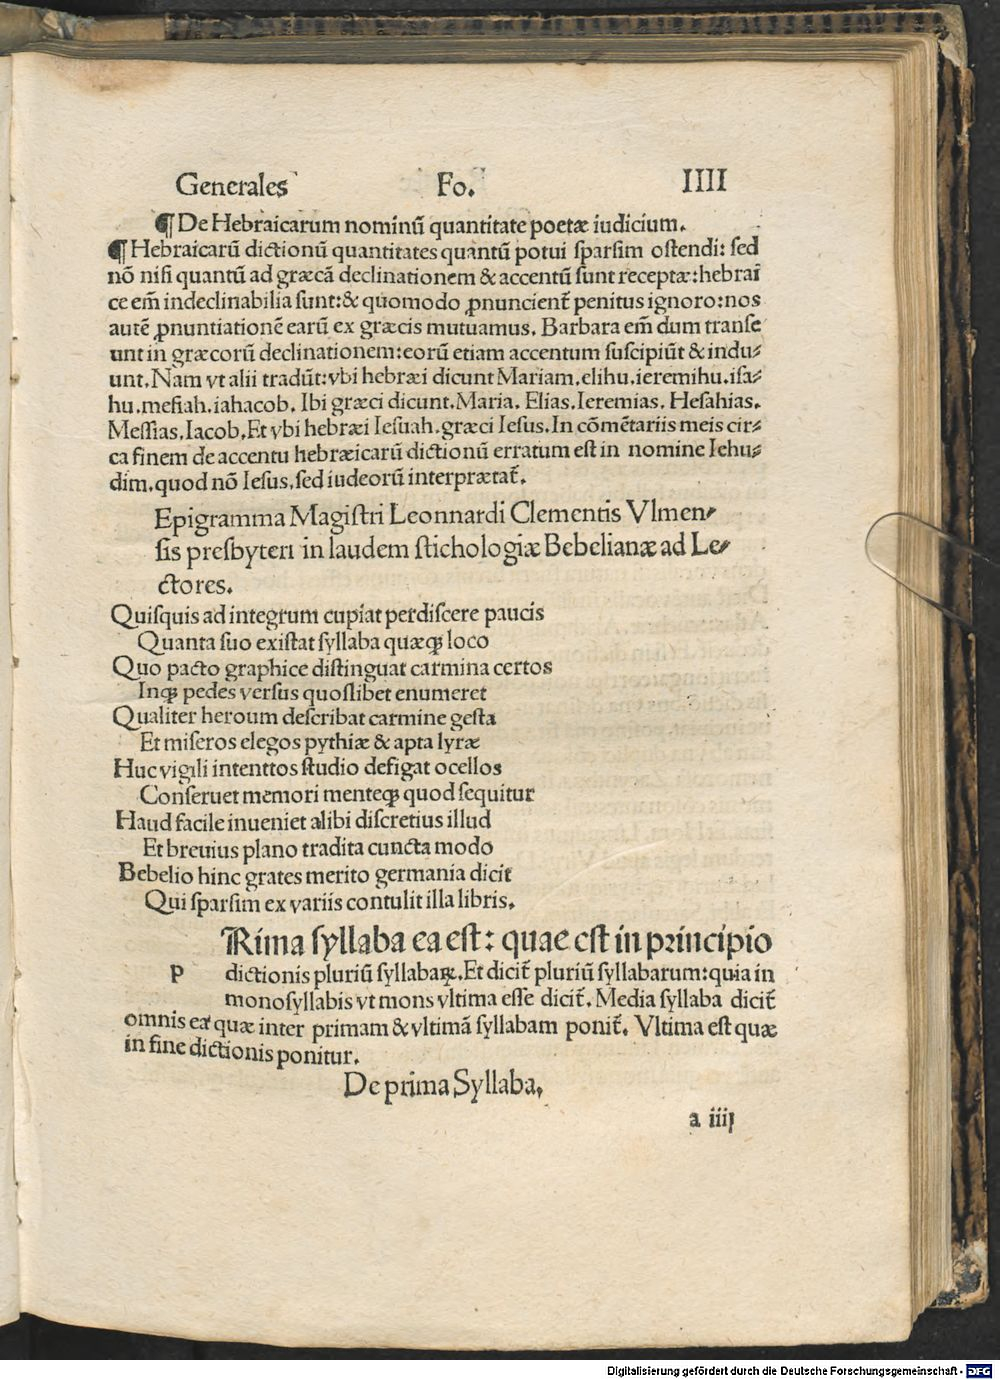 Generales Fo. IIII
¶ De Hebraicarum nominū quantitate poetæ iudicium.
¶ Hebraicarū dictionū quantitates quantū potui sparsim ostendi: sed
nō nisi quantū ad græcā declinationem & accentū sunt receptæ: hebrai
ce em̄ indeclinabilia sunt: & quomodo ꝓnuncient̄ penitus ignoro: nos
autē ꝓnuntiationē earū ex græcis mutuamus. Barbara em̄ dum transe
unt in græcorū declinationem: eorū etiam accentum suscipiūt & indu⸗
unt. Nam vt alii tradūt: vbi hebræi dicunt Mariam. elihu. ieremihu. isa⸗
hu. mesiah. iahacob. Ibi græci dicunt. Maria. Elias. Ieremias. Hesahias.
Messias. Iacob. Et vbi hebræi Iesuah. græci Iesus. In cōmētariis meis cir⸗
ca finem de accentu hebræicarū dictionū erratum est in nomine Iehu⸗
dim. quod nō Iesus. sed iudeorū interprætat̄.
Epigramma Magistri Leonnardi Clementis Vlmen⸗
sis presbyteri in laudem stichologiæ Bebelianæ ad Le⸗
ctores.
Quisquis ad integrum cupiat perdiscere paucis
Quanta suo existat syllaba quæqꝫ loco
Quo pacto graphice distinguat carmina certos
Inqꝫ pedes versus quoslibet enumeret
Qualiter heroum describat carmine gesta
Et miseros elegos pythiæ & apta lyræ
Huc vigili intenttos studio defigat ocellos
Conseruet memori menteqꝫ quod sequitur
Haud facile inueniet alibi discretius illud
Et breuius plano tradita cuncta modo
Bebelio hinc grates merito germania dicit
Qui sparsim ex variis contulit illa libris.
Rima syllaba ea est: quae est in principio
p dictionis pluriū syllabaꝝ. Et dicit̄ pluriū syllabarum: quia in
monosyllabis vt mons vltima esse dicit̄. Media syllaba dicit̄
omnis ea quæ inter primam & vltimā syllabam ponit̄. Vltima est quæ
in fine dictionis ponitur.
De prima Syllaba.
a iiij
Digitalisierung gefördert durch die Deutsche Forschungsgemeinschaft - DFG